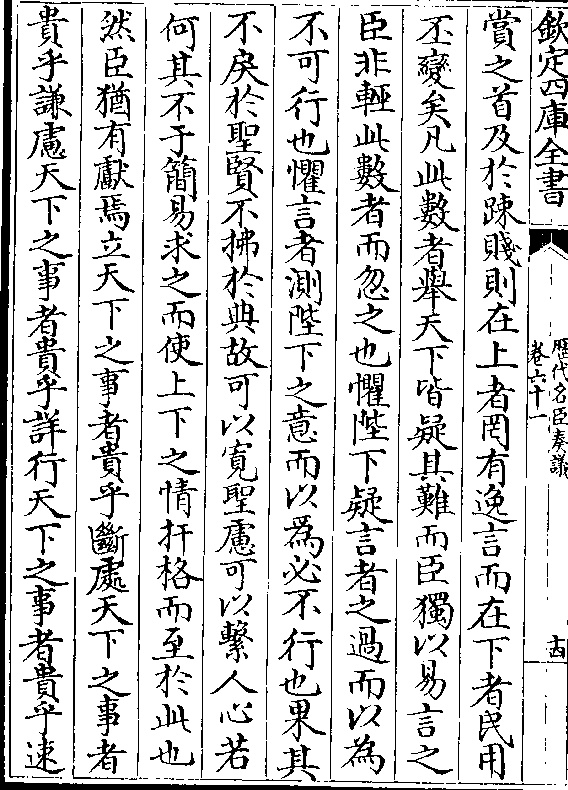 欽定四庫全書
歷代名臣奏議
卷六十一
十四
賞之首及於踈賤則在上者罔有逸言而在下者民用
丕變矣凡此數者舉天下皆疑其難而臣獨以易言之
臣非輕此數者而忽之也懼陛下疑言者之過而以為
不可行也懼言者測陛下之意而以為必不行也果其
不戾於聖賢不拂於典故可以寬聖慮可以繫人心若
何其不于簡易求之而使上下之情扞格而至於此也
然臣猶有獻焉立天下之事者貴乎斷處天下之事者
貴乎謙慮天下之事者貴乎詳行天下之事者貴乎速